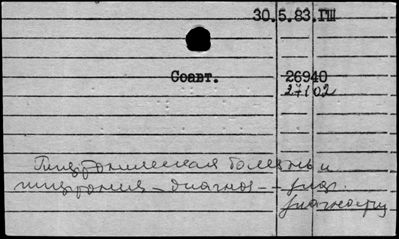 30.5.83.ГШ
Соавт. 26940
27102
Гипертоническая болезнь и
гипертония – диагноз –